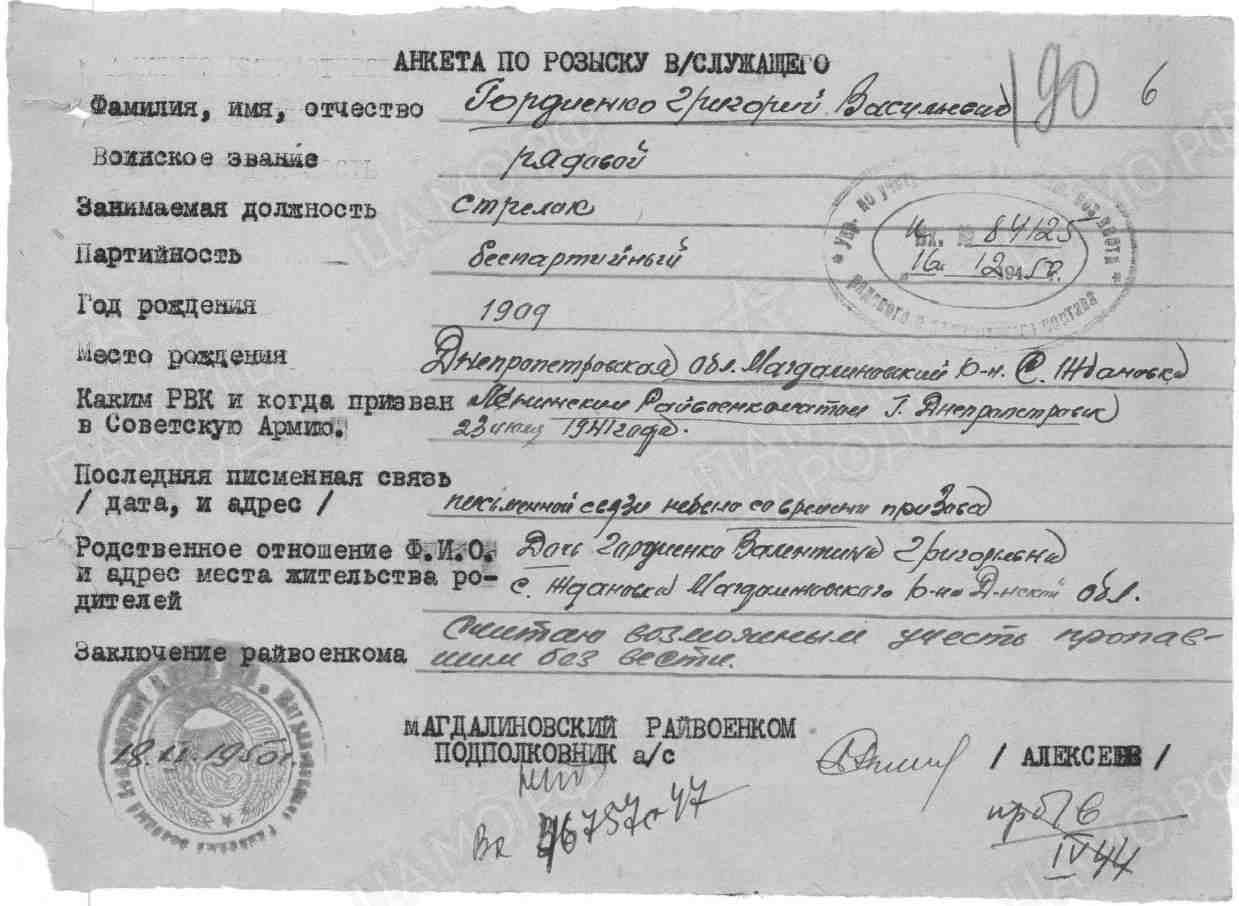 АНКЕТА ПО РОЗЫСКУ В/СЛУЖАЩЕГО
190 6
Фамилия, имя, отчество Гордиенко Григорий Васильевич
Воинское звание рядовой
Занимаемая должность стрелок
Упр. по учету
Вх. № 84125
16 12 1950г.
Партийность беспартийный
Год рождения 1909
Место рождения Днепропетровская обл. Магдалиновский р-н. С. Ждановка
Каким РВК и когда призван Ленинским Райвоенкоматом Г. Днепропетровск
в Советскую Армию. 23 июля 1941 года.
Последняя писменная связь
/ дата, и адрес / письменной связи небыло со времени призыва
Родственное отношение Ф.И.О. Дочь Гордиенко Валентина Григорьевна
и адрес места жительства ро- с. Ждановка Магдалиновского р-на Д-нской обл.
дителей
Считаю возможным учесть пропав-
Заключение райвоенкома шим без вести.
МАГДАЛИНОВСКИЙ РАЙВОЕНКОМ
ПОДПОЛКОВНИК а/с / АЛЕКСЕЕВ /
1950г.
IV 44
ЦАМО.РФ